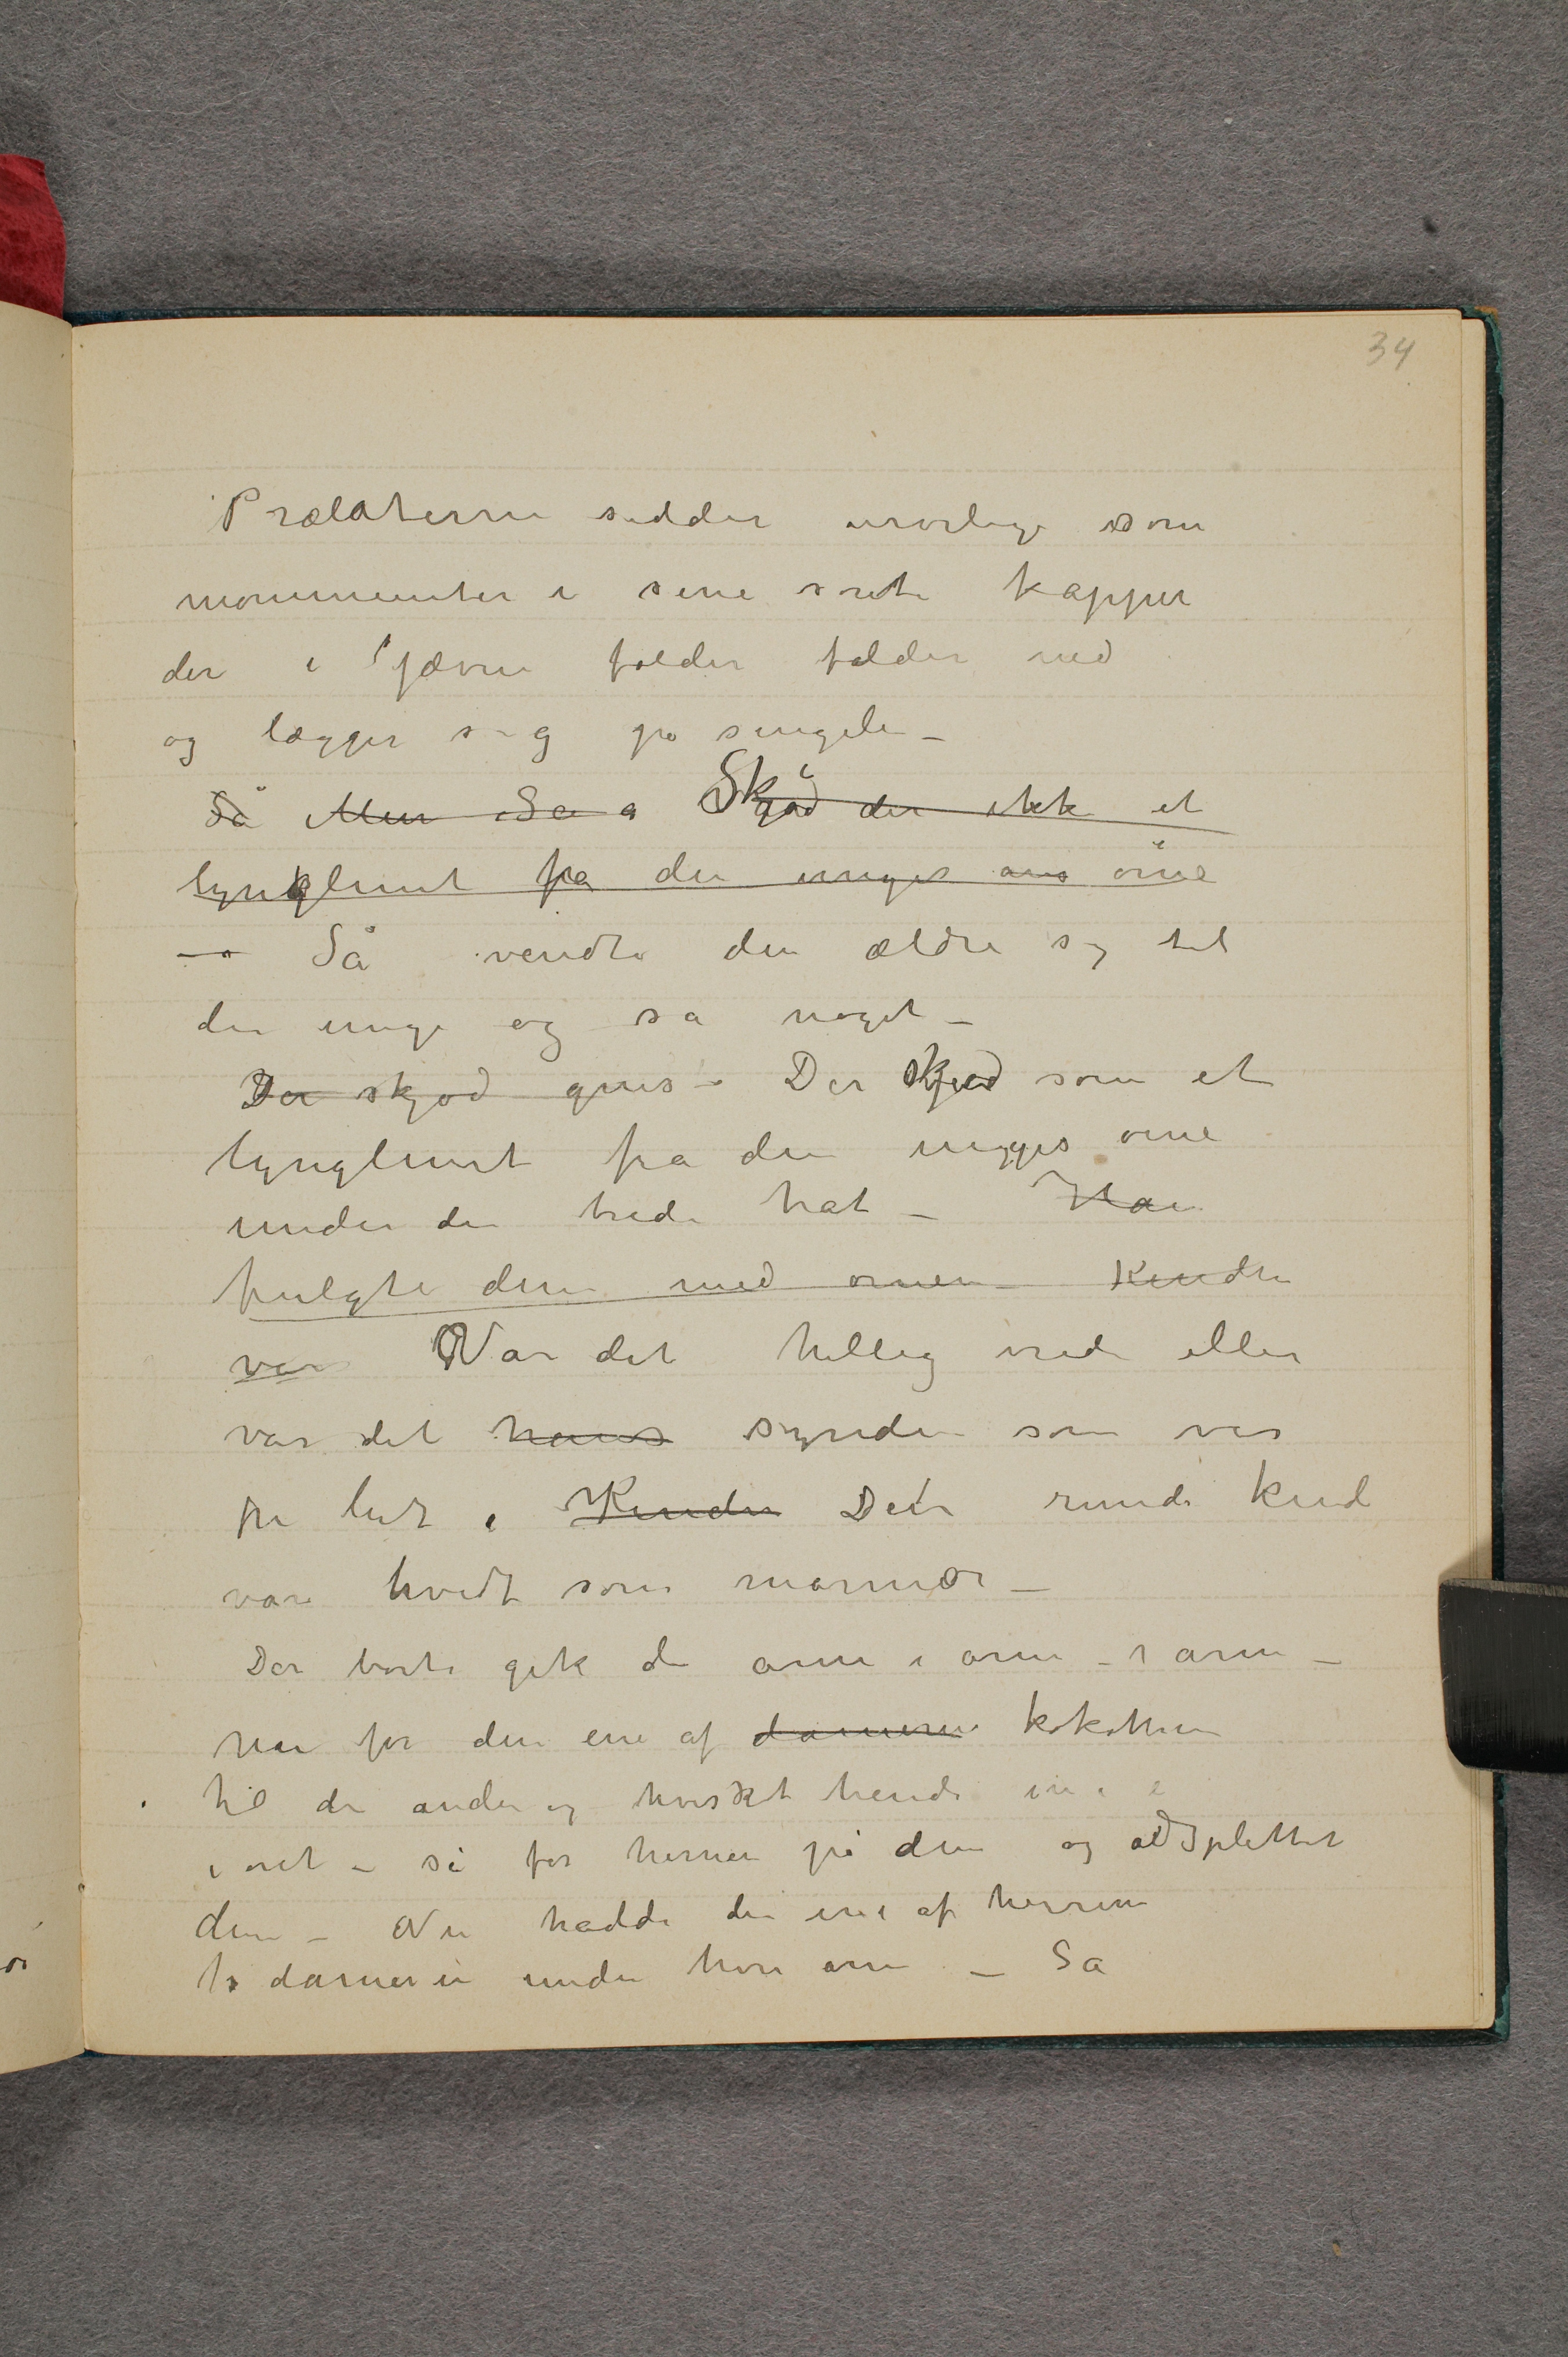 34
Prælaterne sidder urørlige som
monnumenter i sine sorte kapper
der i jævne folder falder ned
og lægger sig på singelen –
Så Men Så Skjød der ikke et
lynglimt fra den unges øine
– Så vendte den ældre sig til
den unge og sa noget –
Der skjød gnis – Der skjød som et
lynglimt fra den unges øine
under den brede hat – Han
fulgte dem med øinene – Kinden
var Var det hellig vrede eller
var det hans synden som var
for lidt i Kinden Det runde kind
var hvidt som marmor –
Der borte gik de arm i arm – arm –
når for den ene af damerne kokotterne
til den anden og hvisket hende ind i
i øret – så for herrene på dem og adsplittet
dem – Nu hadde den ene af herrerne
to damer en under hver arm – Så